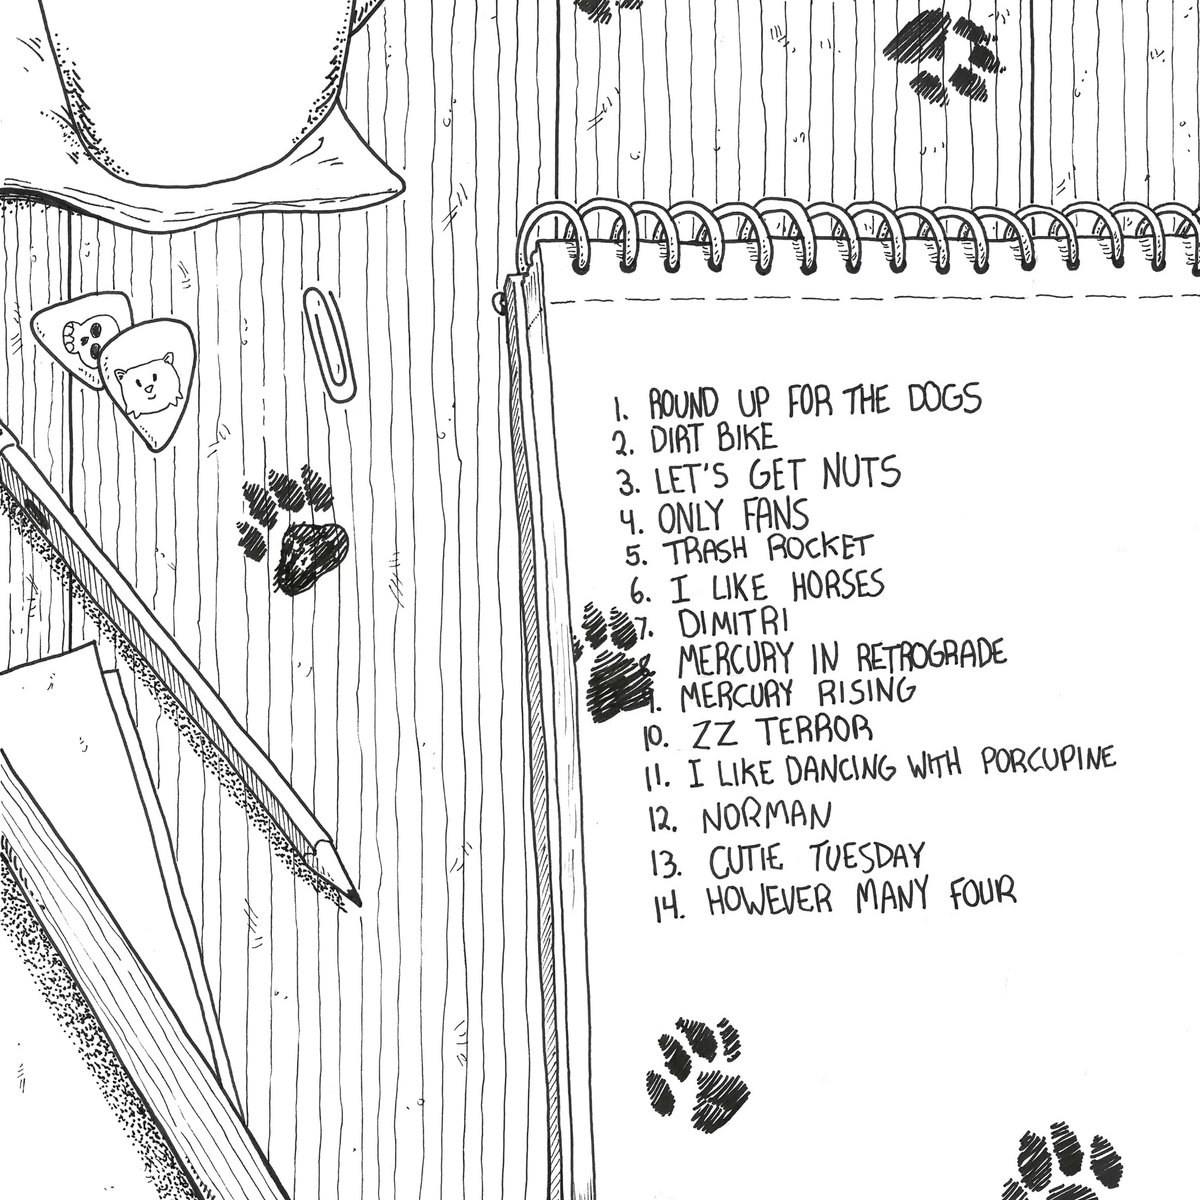 1. ROUND UP FOR THE DOGS
2. DIRT BIKE
3. LET'S GET NUTS
4. ONLY FANS
5. TRASH ROCKET
6. I LIKE HORSES
7. DIMITRI
8 MERCURY IN RETROGRADE
9. MERCURY RISING
10. ZZ TERROR
11. I LIKE DANCING WITH PORCUPINE
12. NORMAN
13. CUTIE TUESDAY
14. HOWEVER MANY FOUR